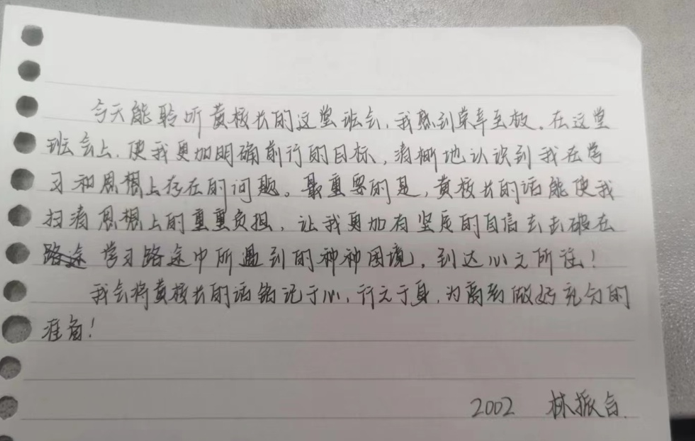 今天能聆听黄校长的这堂班会，我感到荣幸至极。在这堂
班会上，使我更加明确前行的目标，清晰地认识到我在学
习和思想上存在的问题。最重要的是，黄校长的话能使我
扫清思想上的重重负担，让我更加有坚定的自信去击破在
学习路途中所遇到的种种困境，到达心之所往！
我会将黄校长的话铭记于心，行之于身，为高考做好充分的
准备！
2002 林振